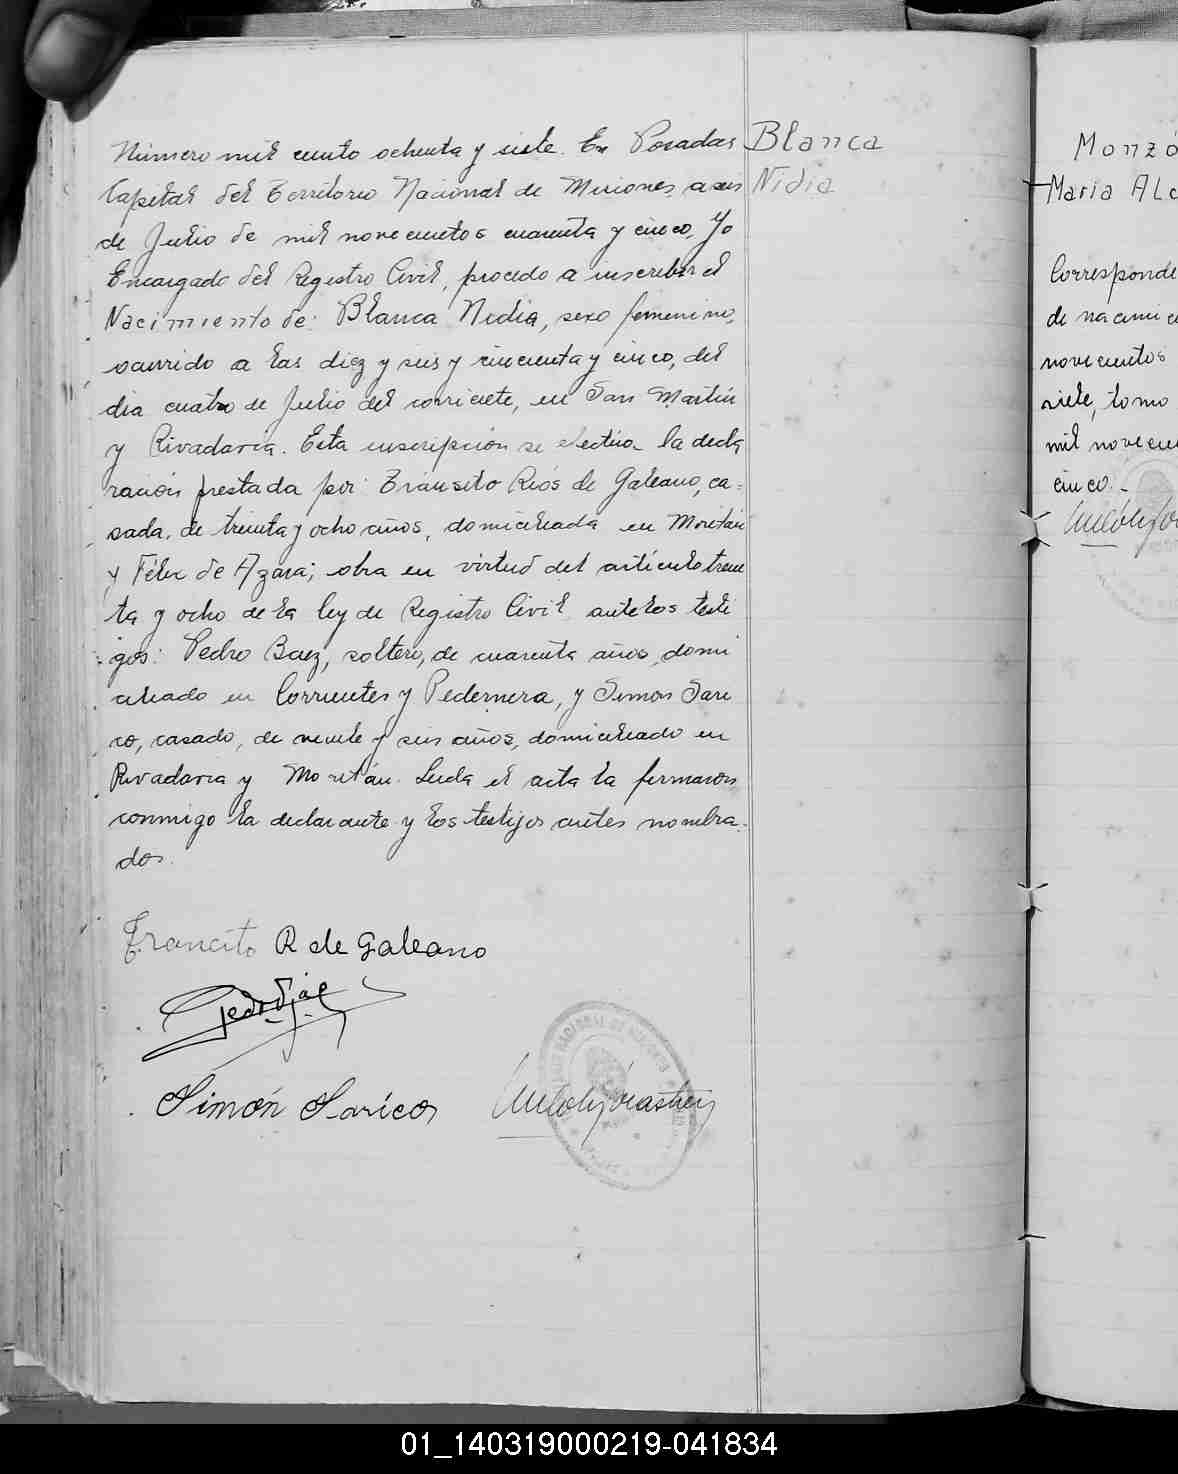 Número mil ciento ochenta y siete. En Posadas
Capital del Territorio Nacional de Misiones, a seis
de Julio de mil novecientos cuarenta y cinco, Yo
Encargado del Registro Civil, procedo a inscribir el
Nacimiento de: Blanca Nidia, sexo femenino,
ocurrido a las diez y seis y cincuenta y cinco, del
día cuatro de Julio del corriente, en San Martín
y Rivadavia. Esta inscripción se efectúa la decla
ración prestada por: Tránsito Ríos de Galeano, ca=
sada, de treinta y ocho años, domiciliada en Moritán
y Félix de Azara; obra en virtud del artículo trein
ta y ocho de la ley de Registro Civil ante los testi
gos: Pedro Baez, soltero, de cuarenta años, domi
ciliado en Corrientes y Pedernera, y Simon Sari
co, casado, de veinte y seis años, domiciliado en
Rivadavia y Moritán. Leida el acta la firmaron
conmigo la declarante y los testigos antes nombra-
dos.
Francito R de Galeano
Simón Sarico
Blanca
Nidia
Monzó
María Alc
Corresponde
de nacimie
novecientos
siete, tomo
mil novecien
cinco.-
01_140319000219-041834